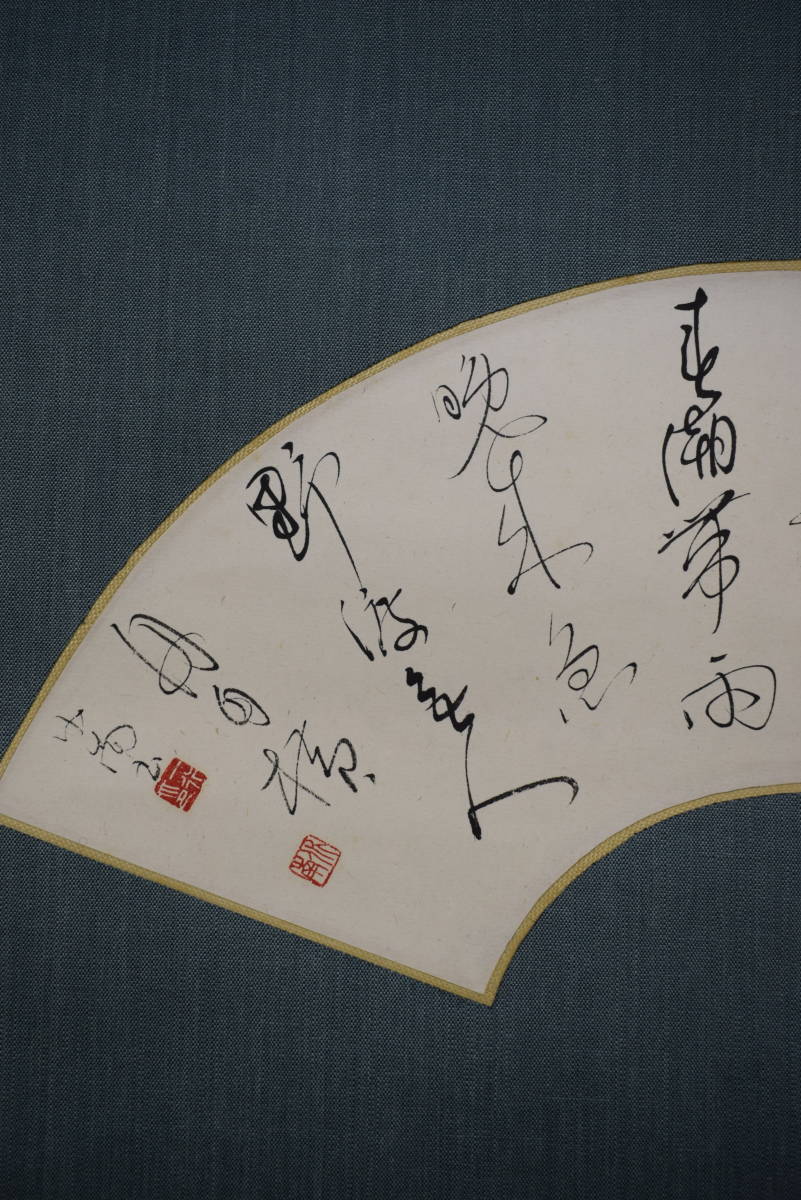 春潮帶雨
晚来急
野渡無人
舟自橫